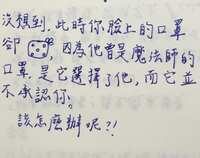 沒想到，此時你臉上的口罩
卻，因為他曾是魔法師的
口罩，是它選擇了他，而它並
不承認你。
該怎麼辦呢？！